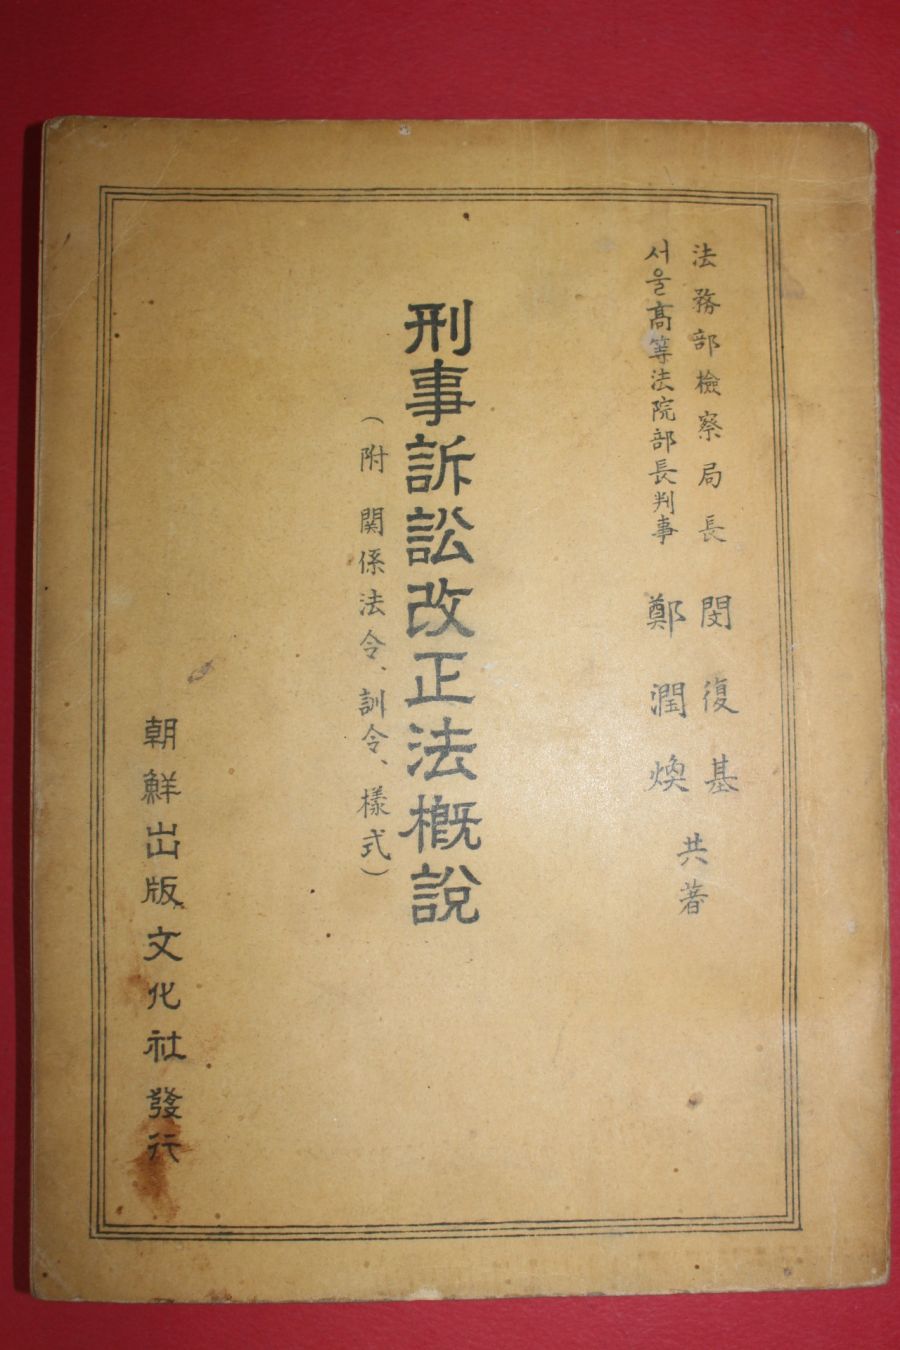 法務部檢察局長 閔復基
서울高等法院部長判事 鄭潤煥
共著
刑事訴訟改正法概說
(附 関係法令、訓令、樣式)
朝鮮出版文化社發行